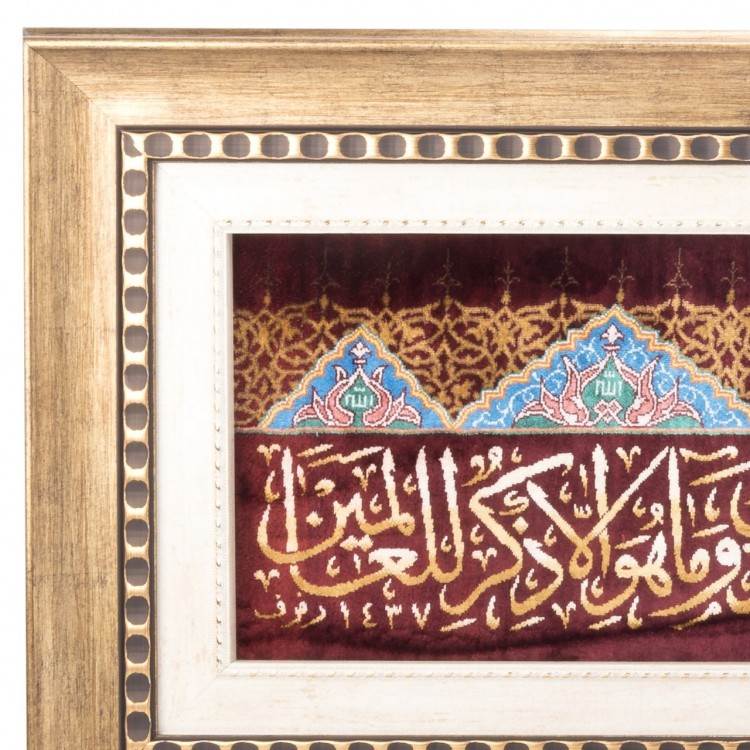 الله الله
وما هو الا ذكر للعالمين
١٤٣٧